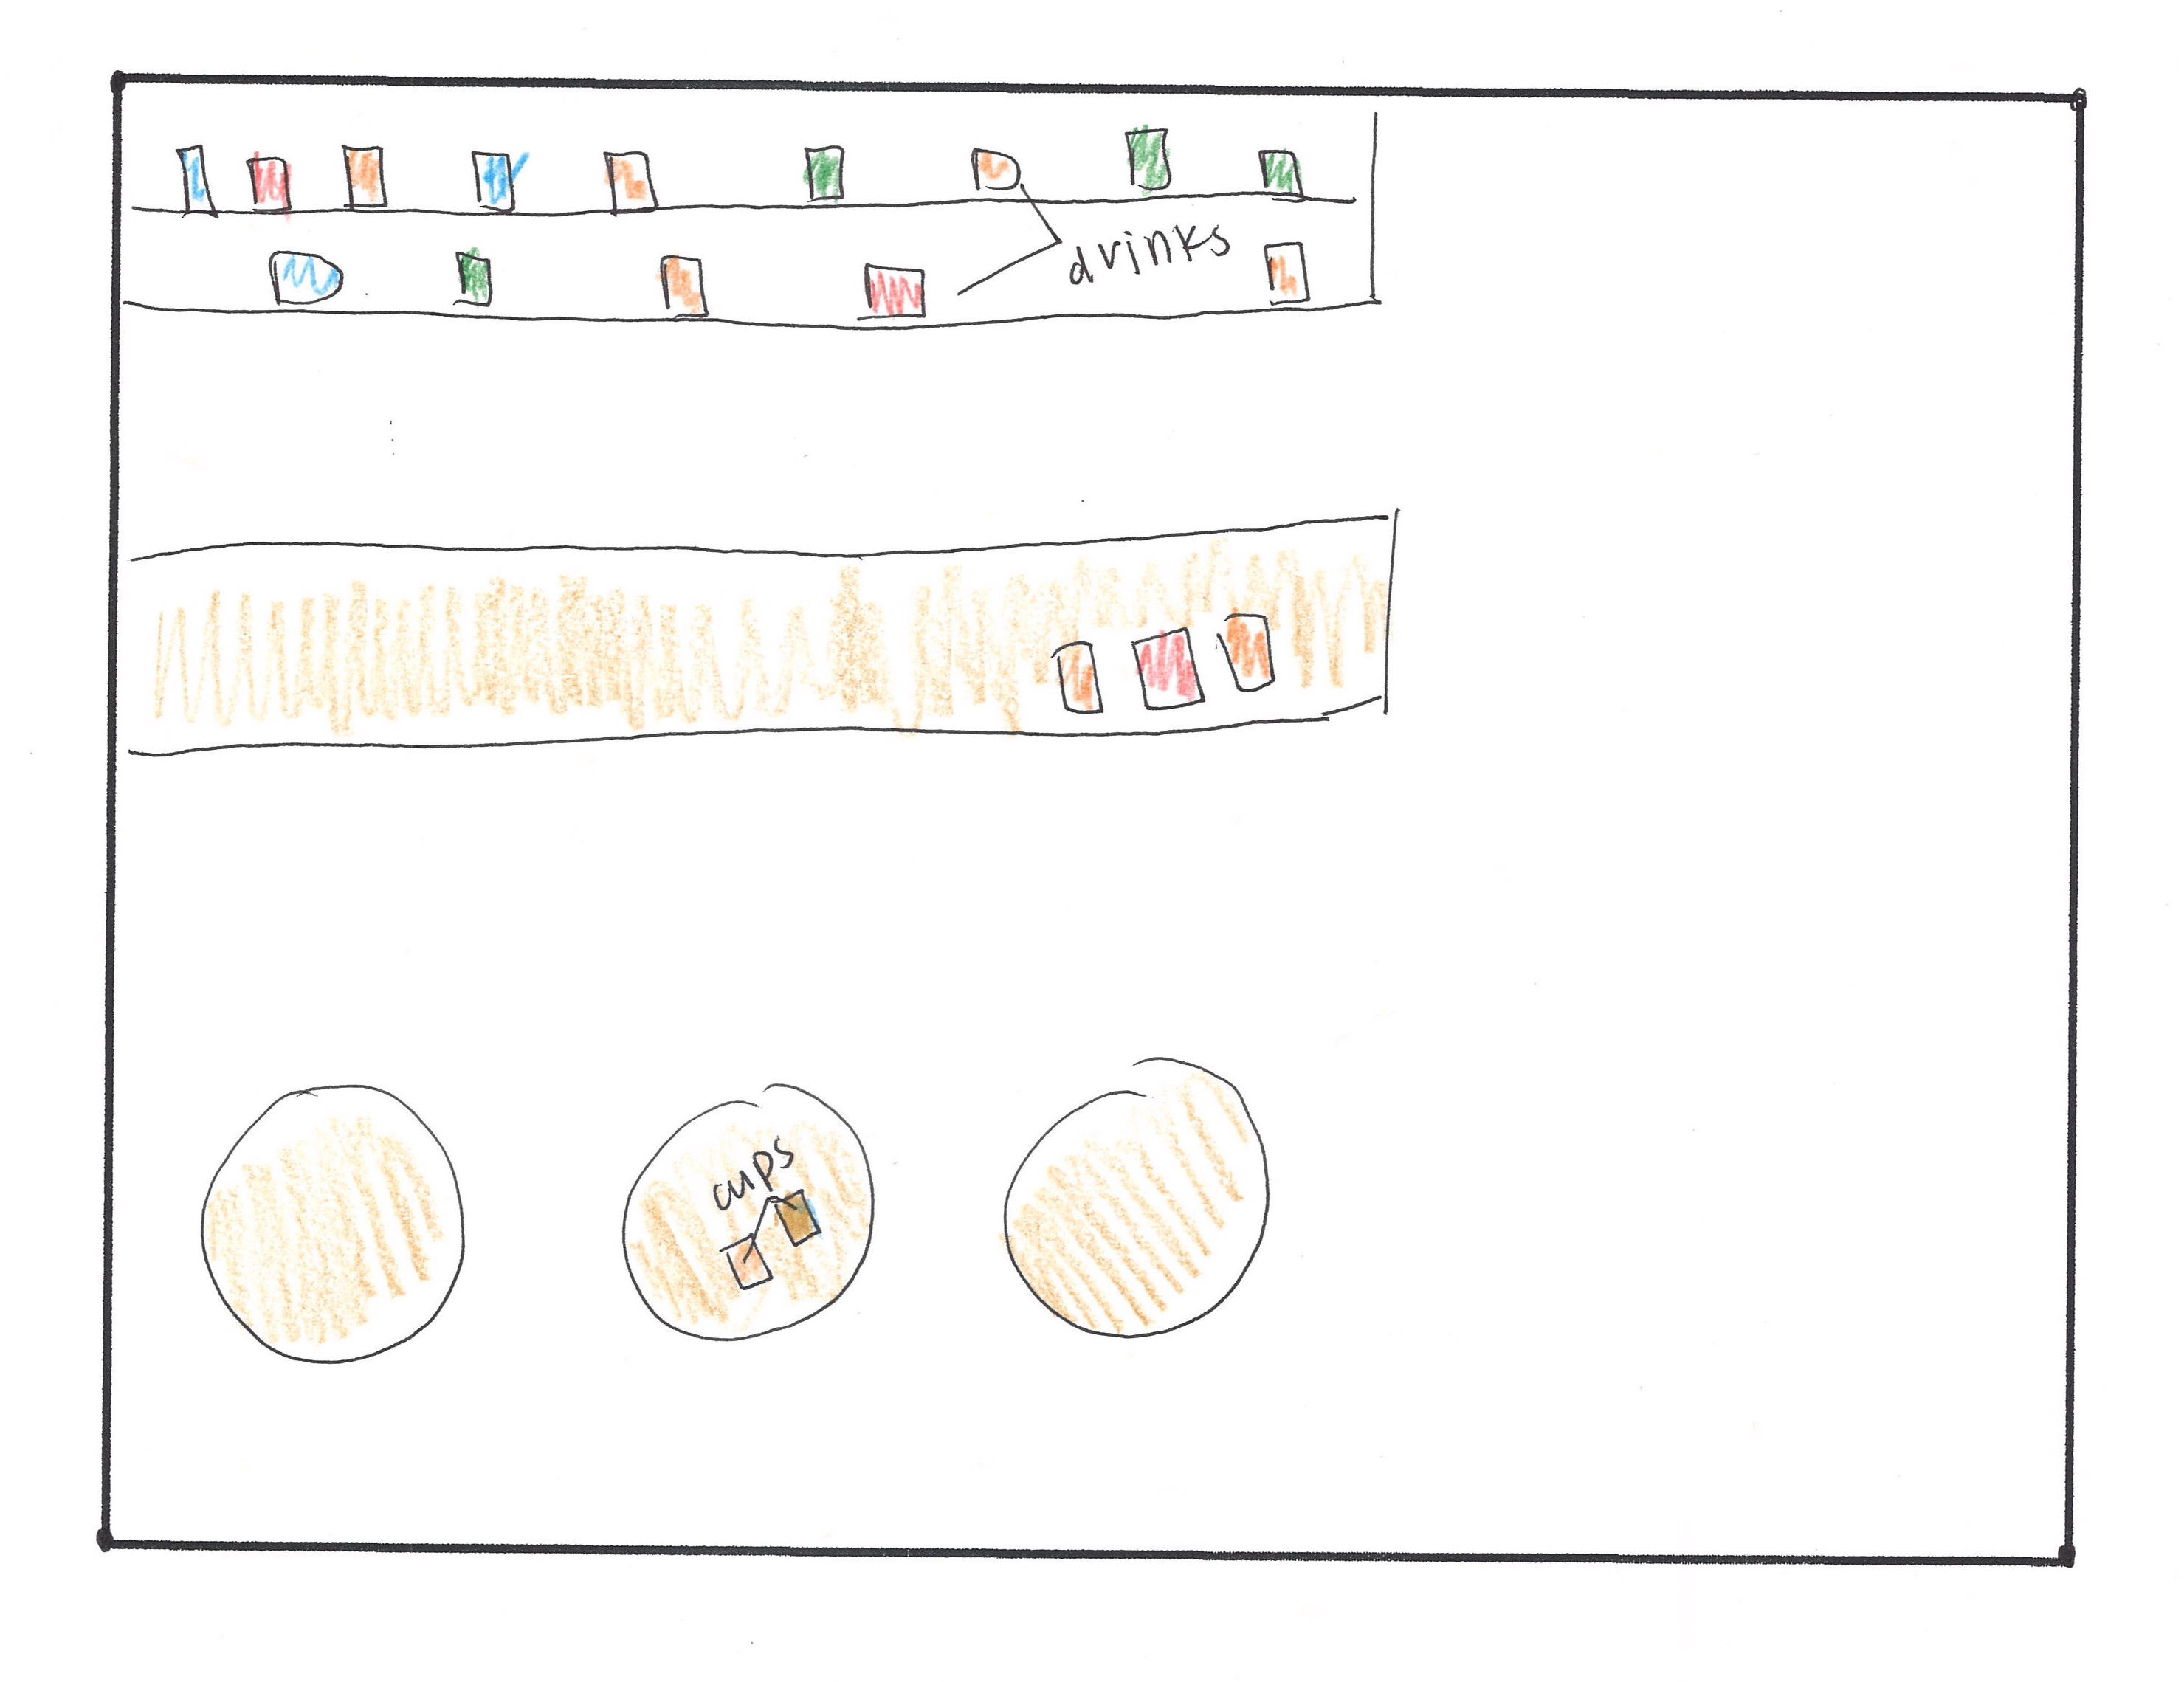 drinks
cups